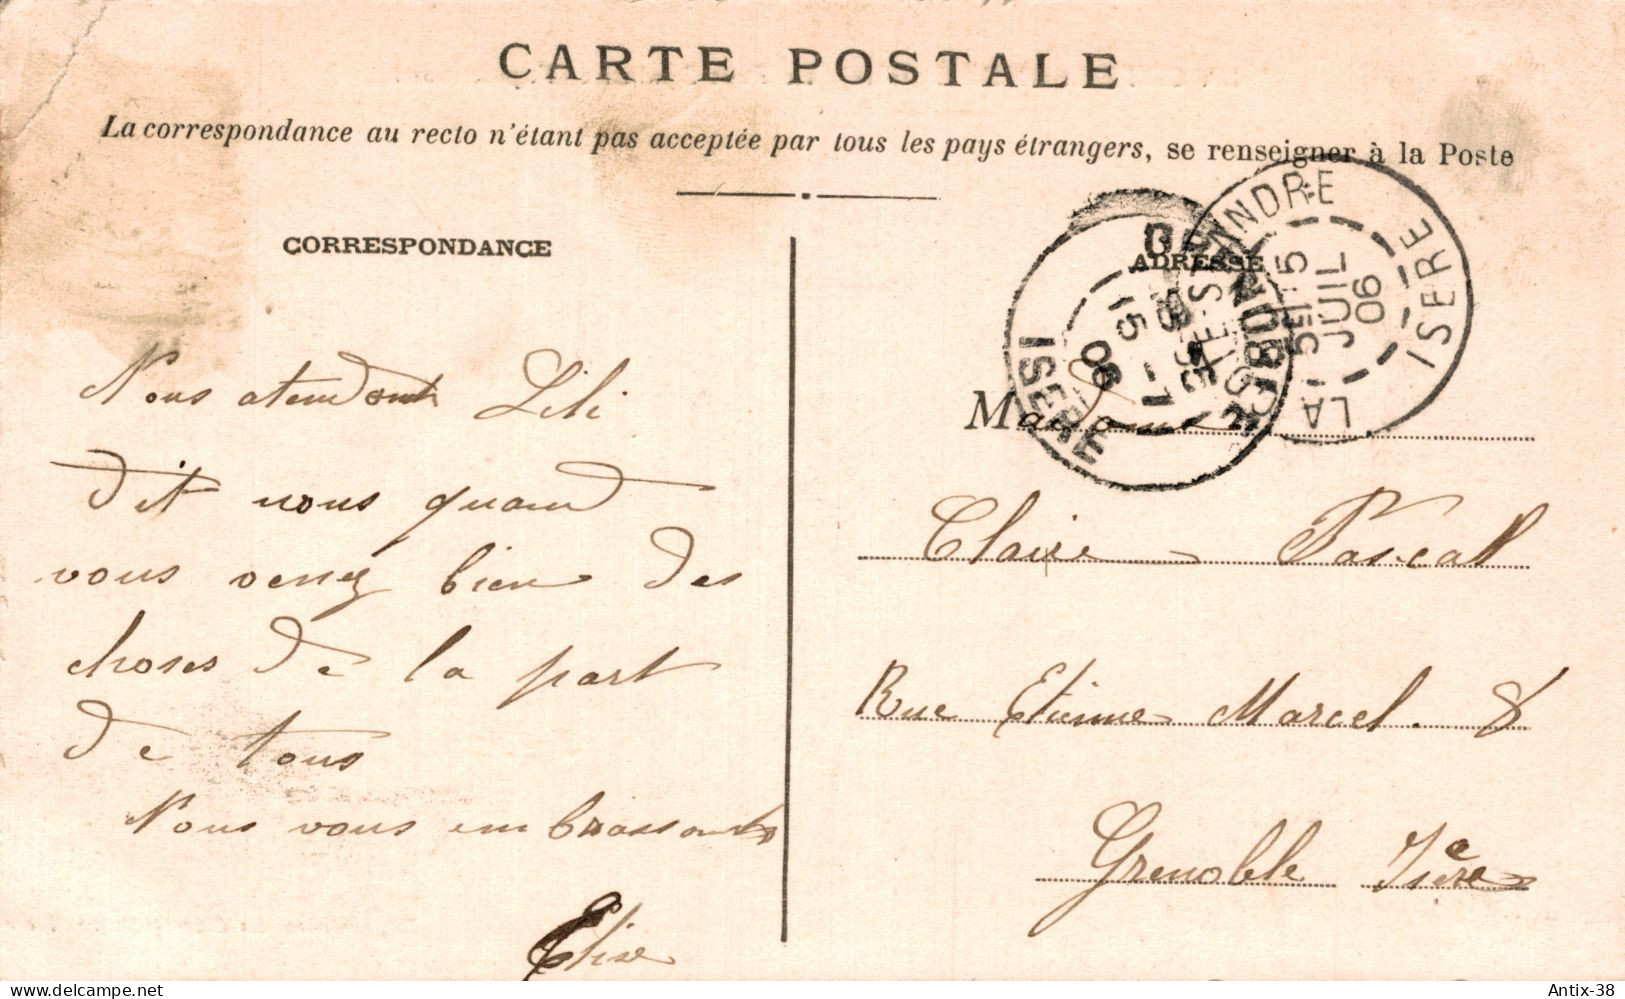 CARTE POSTALE
La correspondance au recto n'étant pas acceptée par tous les pays étrangers, se renseigner à la Poste
CORRESPONDANCE
ADRESSE
Nous atendont Lili
dit nous quand
vous venez bien des
choses de la part
de tous
Nous vous embrassont
Elise
Madame
Claire Pascal
Rue Etienne Marcel. 8
Grenoble Isère
GRENOBLE
15 -7
06
ISERE
LA
INDRE
15
JUIL
06
ISERE
delcampe.net
Antix-38